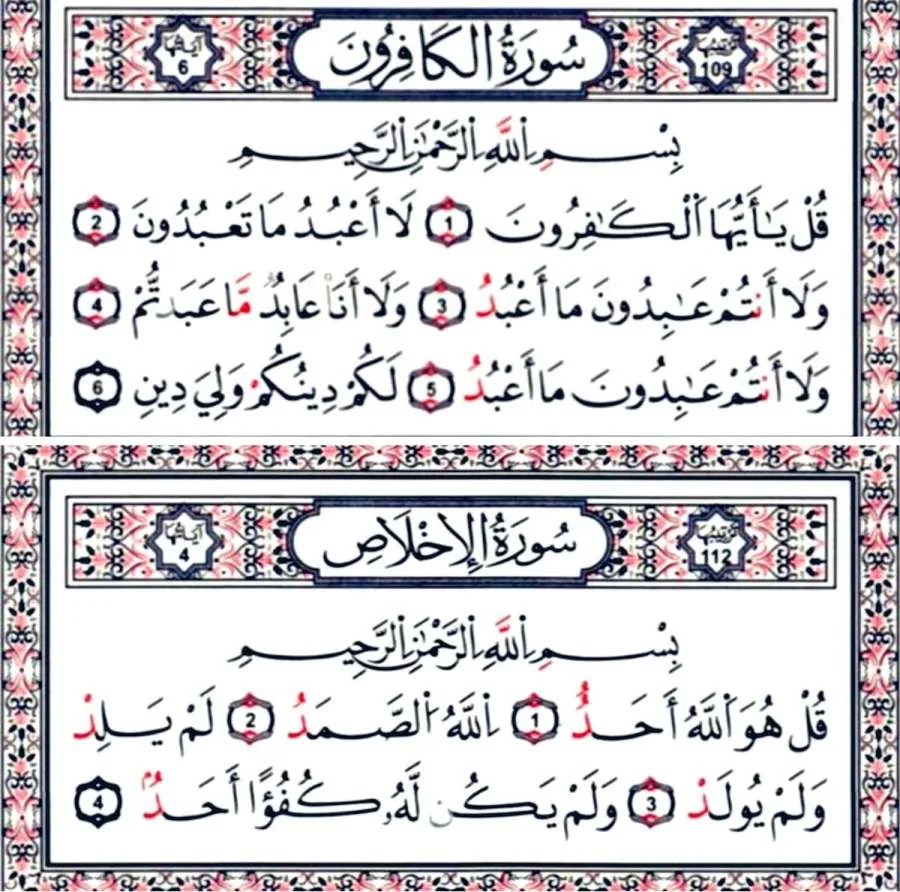 ترتيبها 109 سُورَةُ الكَافِرُونَ آياتها 6
بِسْمِ ٱللَّهِ ٱلرَّحْمَٰنِ ٱلرَّحِيمِ
قُلْ يَٰٓأَيُّهَا ٱلْكَٰفِرُونَ 1 لَآ أَعْبُدُ مَا تَعْبُدُونَ 2
وَلَآ أَنتُمْ عَٰبِدُونَ مَآ أَعْبُدُ 3 وَلَآ أَنَا۠ عَابِدٌ مَّا عَبَدتُّمْ 4
وَلَآ أَنتُمْ عَٰبِدُونَ مَآ أَعْبُدُ 5 لَكُمْ دِينُكُمْ وَلِيَ دِينِ 6
ترتيبها 112 سُورَةُ الإِخْلَاصِ آياتها 4
بِسْمِ ٱللَّهِ ٱلرَّحْمَٰنِ ٱلرَّحِيمِ
قُلْ هُوَ ٱللَّهُ أَحَدٌ 1 ٱللَّهُ ٱلصَّمَدُ 2 لَمْ يَلِدْ
وَلَمْ يُولَدْ 3 وَلَمْ يَكُن لَّهُۥ كُفُؤًا أَحَدٌۢ 4